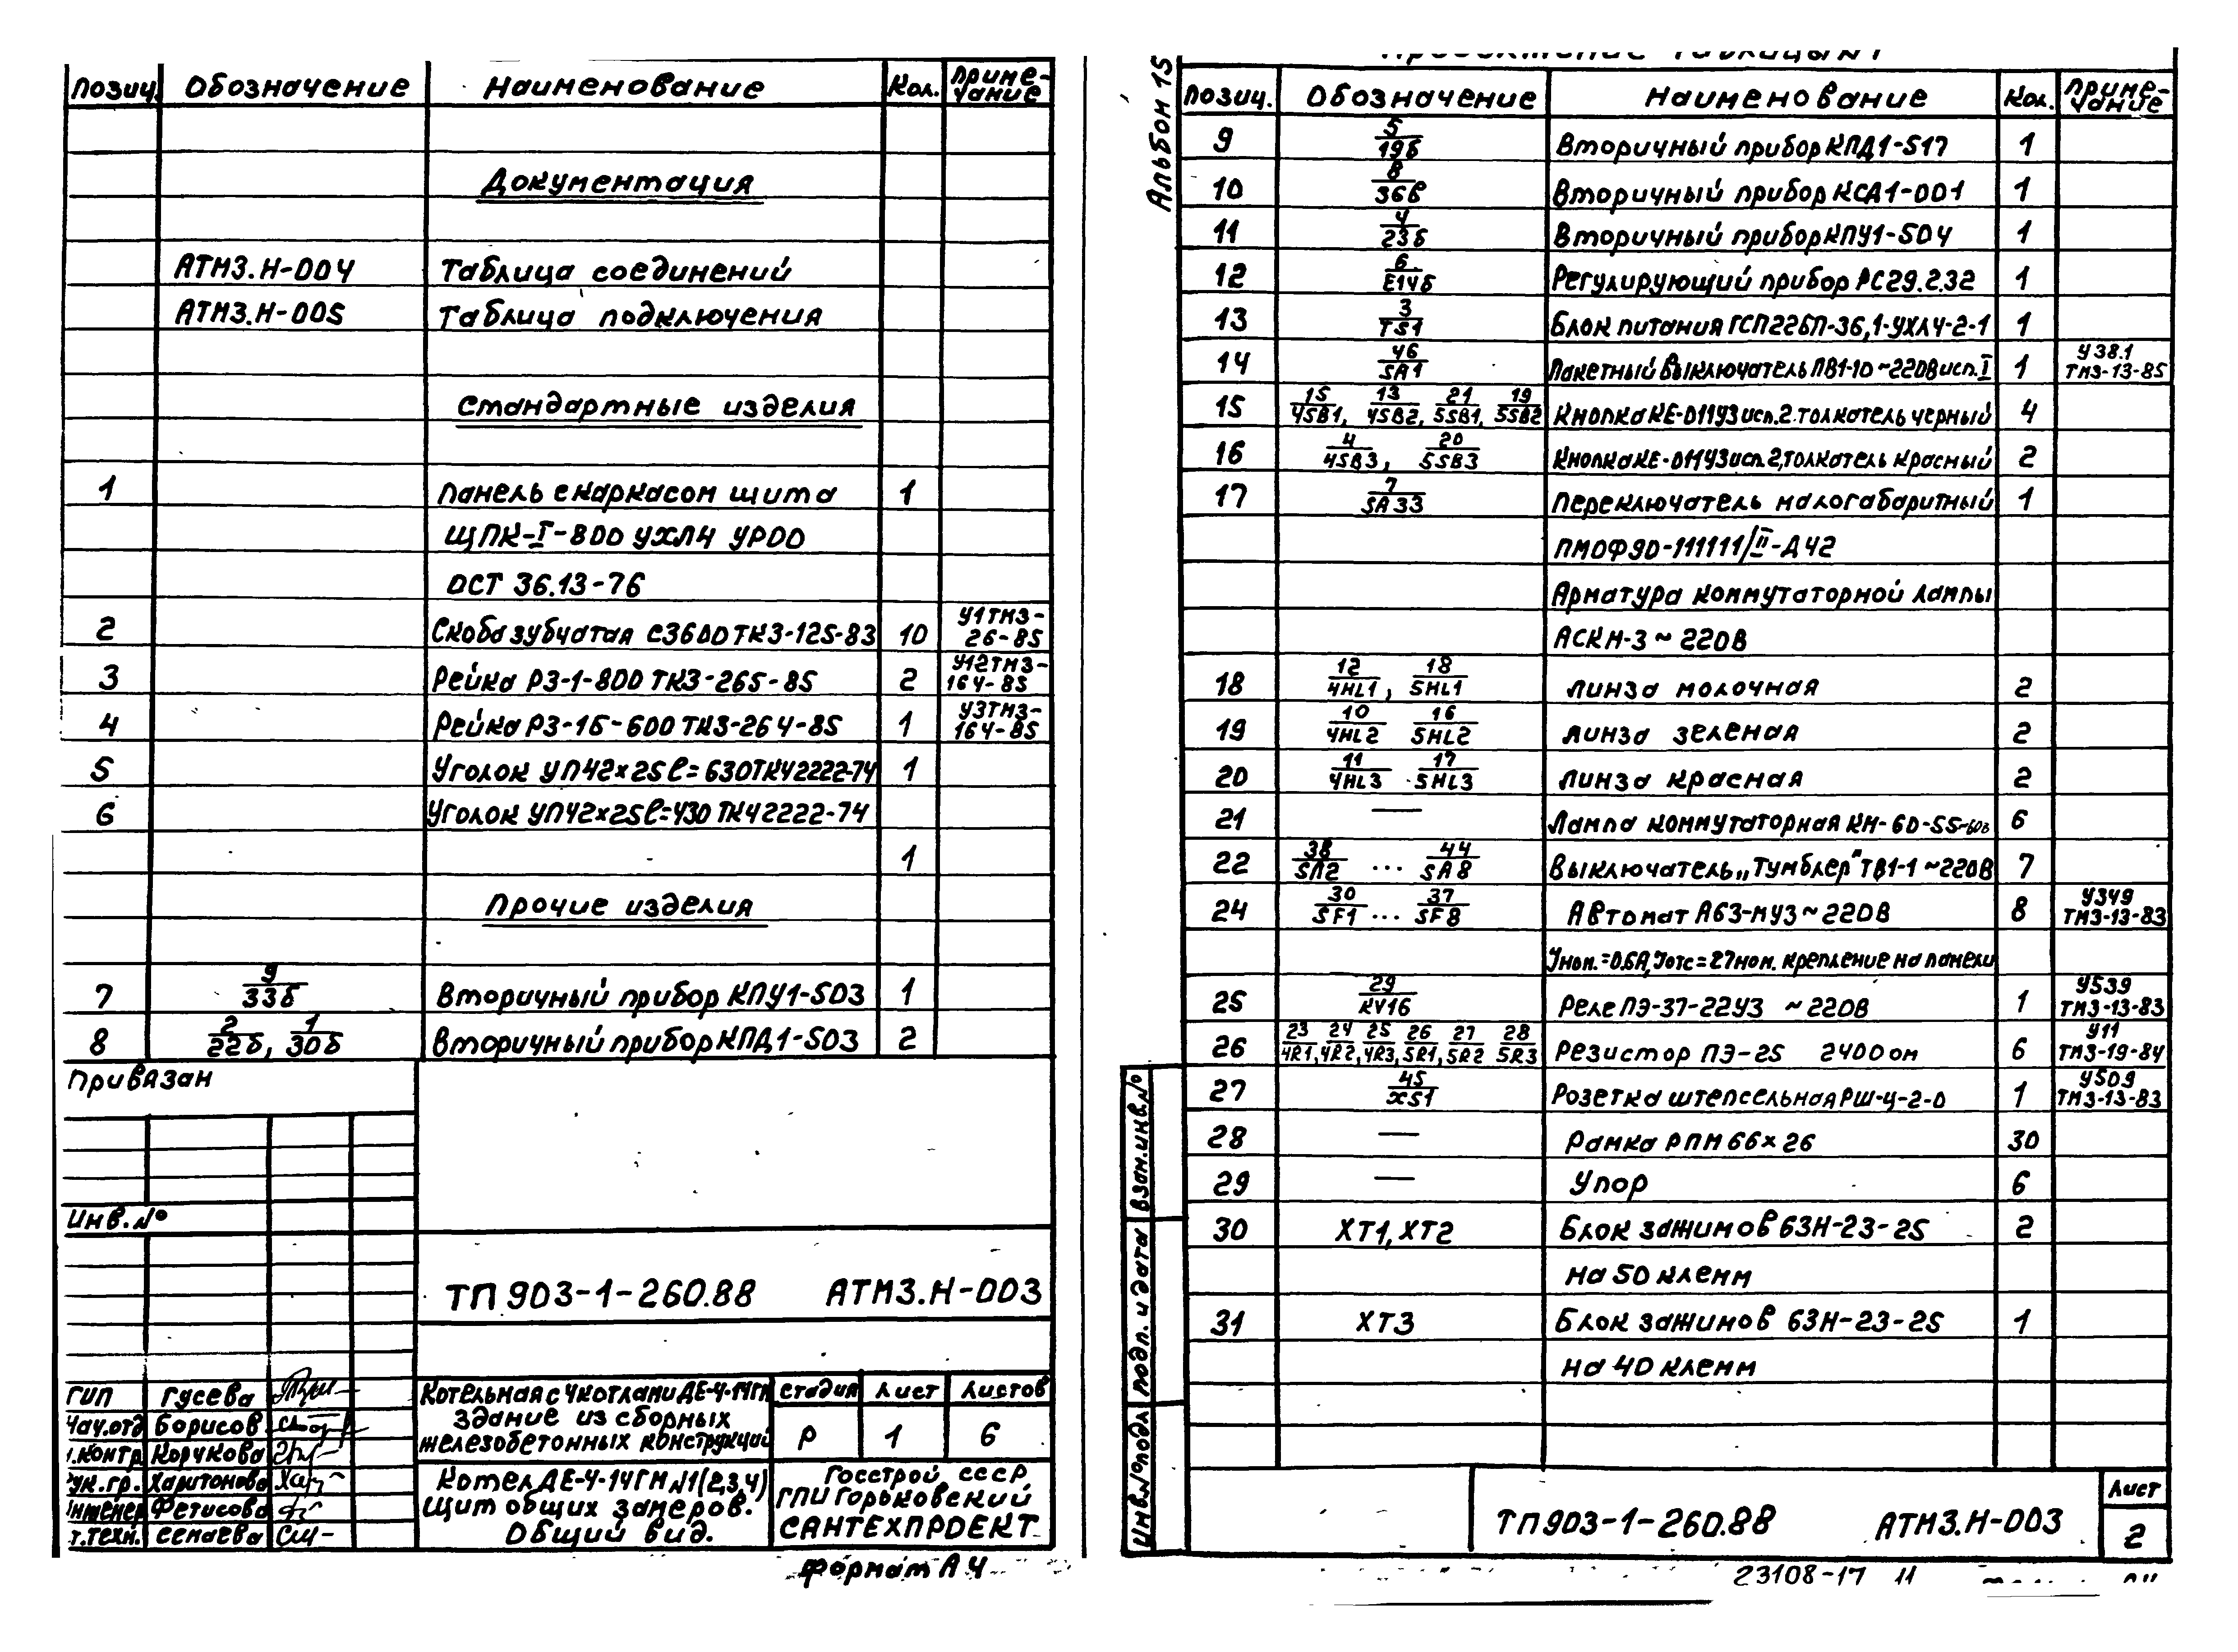 Позиц. Обозначение Наименование Кол. Приме-
чание
Документация
АТМ3.Н-004 Таблица соединений
АТМ3.Н-005 Таблица подключения
Стандартные изделия
1 Панель с каркасом щита 1
ЩПК-I-800 УХЛ4 УР00
ОСТ 36.13-76
2 Скоба зубчатая С3600 ТК3-125-83 10 У1ТМ3-
26-85
3 Рейка Р3-1-800 ТК3-265-85 2 У12ТМ3-
164-85
4 Рейка Р3-1Б-600 ТК3-264-85 1 У3ТМ3-
164-85
5 Уголок УП42×25 ℓ=630 ТК42222-74 1
6 Уголок УП42×25 ℓ=430 ТК42222-74
1
Прочие изделия
7 9/33б Вторичный прибор КПУ1-503 1
8 2/22б, 1/30б Вторичный прибор КПД1-503 2
Привязан
Инв.№
ТП 903-1-260.88 АТМ3.Н-003
ГИП Гусева
Нач.отд Борисов
Н.контр. Корчкова
Рук.гр. Харитонова
Инженер Фетисова
Ст.техн. Семаева
Котельная с 4 котлами ДЕ-4-14ГМ
Здание из сборных
железобетонных конструкций
Стадия Лист Листов
Р 1 6
Котел ДЕ-4-14ГМ №1(2,3,4)
Щит общих замеров.
Общий вид.
Госстрой СССР
ГПИ Горьковский
САНТЕХПРОЕКТ
Формат А4
Альбом 15
Продолжение таблицы №1
Позиц. Обозначение Наименование Кол. Приме-
чание
9 5/19б Вторичный прибор КПД1-517 1
10 8/36в Вторичный прибор КСД1-001 1
11 4/23б Вторичный прибор КПУ1-504 1
12 6/Е14б Регулирующий прибор РС29.2.32 1
13 3/TS1 Блок питания ГСП22БП-36,1-УХЛ4-2-1 1
14 46/SA1 Пакетный выключатель ПВ1-10 ~220В исп.I 1 У38.1
ТМ3-13-85
15 15/4SB1, 13/4SB2, 21/5SB1, 19/5SB2 Кнопка КЕ-011У3 исп.2.толкатель черный 4
16 4/4SB3, 20/5SB3 Кнопка КЕ-011У3 исп.2,толкатель красный 2
17 7/SA33 Переключатель малогабаритный 1
ПМОФ90-111111/II-Д42
Арматура коммутаторной лампы
АСКМ-3 ~ 220В
18 12/4HL1, 18/5HL1 Линза молочная 2
19 10/4HL2 16/5HL2 Линза зеленая 2
20 11/4HL3 17/5HL3 Линза красная 2
21 — Лампа коммутаторная КМ-60-55-60в 6
22 38/SA2 ... 44/SA8 Выключатель „Тумблер" ТВ1-1 ~220В 7
24 30/SF1 ... 37/SF8 Автомат А63-МУ3 ~ 220В 8 У349
ТМ3-13-83
Jном.=0.6А, Jотс=27ном. крепление на панели
25 29/KV16 Реле ПЭ-37-22У3 ~220В 1 У539
ТМ3-13-83
26 23/4R1, 24/4R2, 25/4R3, 26/5R1, 27/5R2 28/5R3 Резистор ПЭ-25 2400 ом 6 У11
ТМ3-19-84
27 45/XS1 Розетка штепсельная РШ-Ч-2-0 1 У509
ТМ3-13-83
28 — Рамка РПМ 66×26 30
29 — Упор 6
30 ХТ1, ХТ2 Блок зажимов БЗН-23-25 2
на 50 клемм
31 ХТ3 Блок зажимов БЗН-23-25 1
на 40 клемм
Взам.инв.№
Подп. и дата
Инв.№подл
ТП903-1-260.88 АТМ3.Н-003
Лист
2
23108-17 11